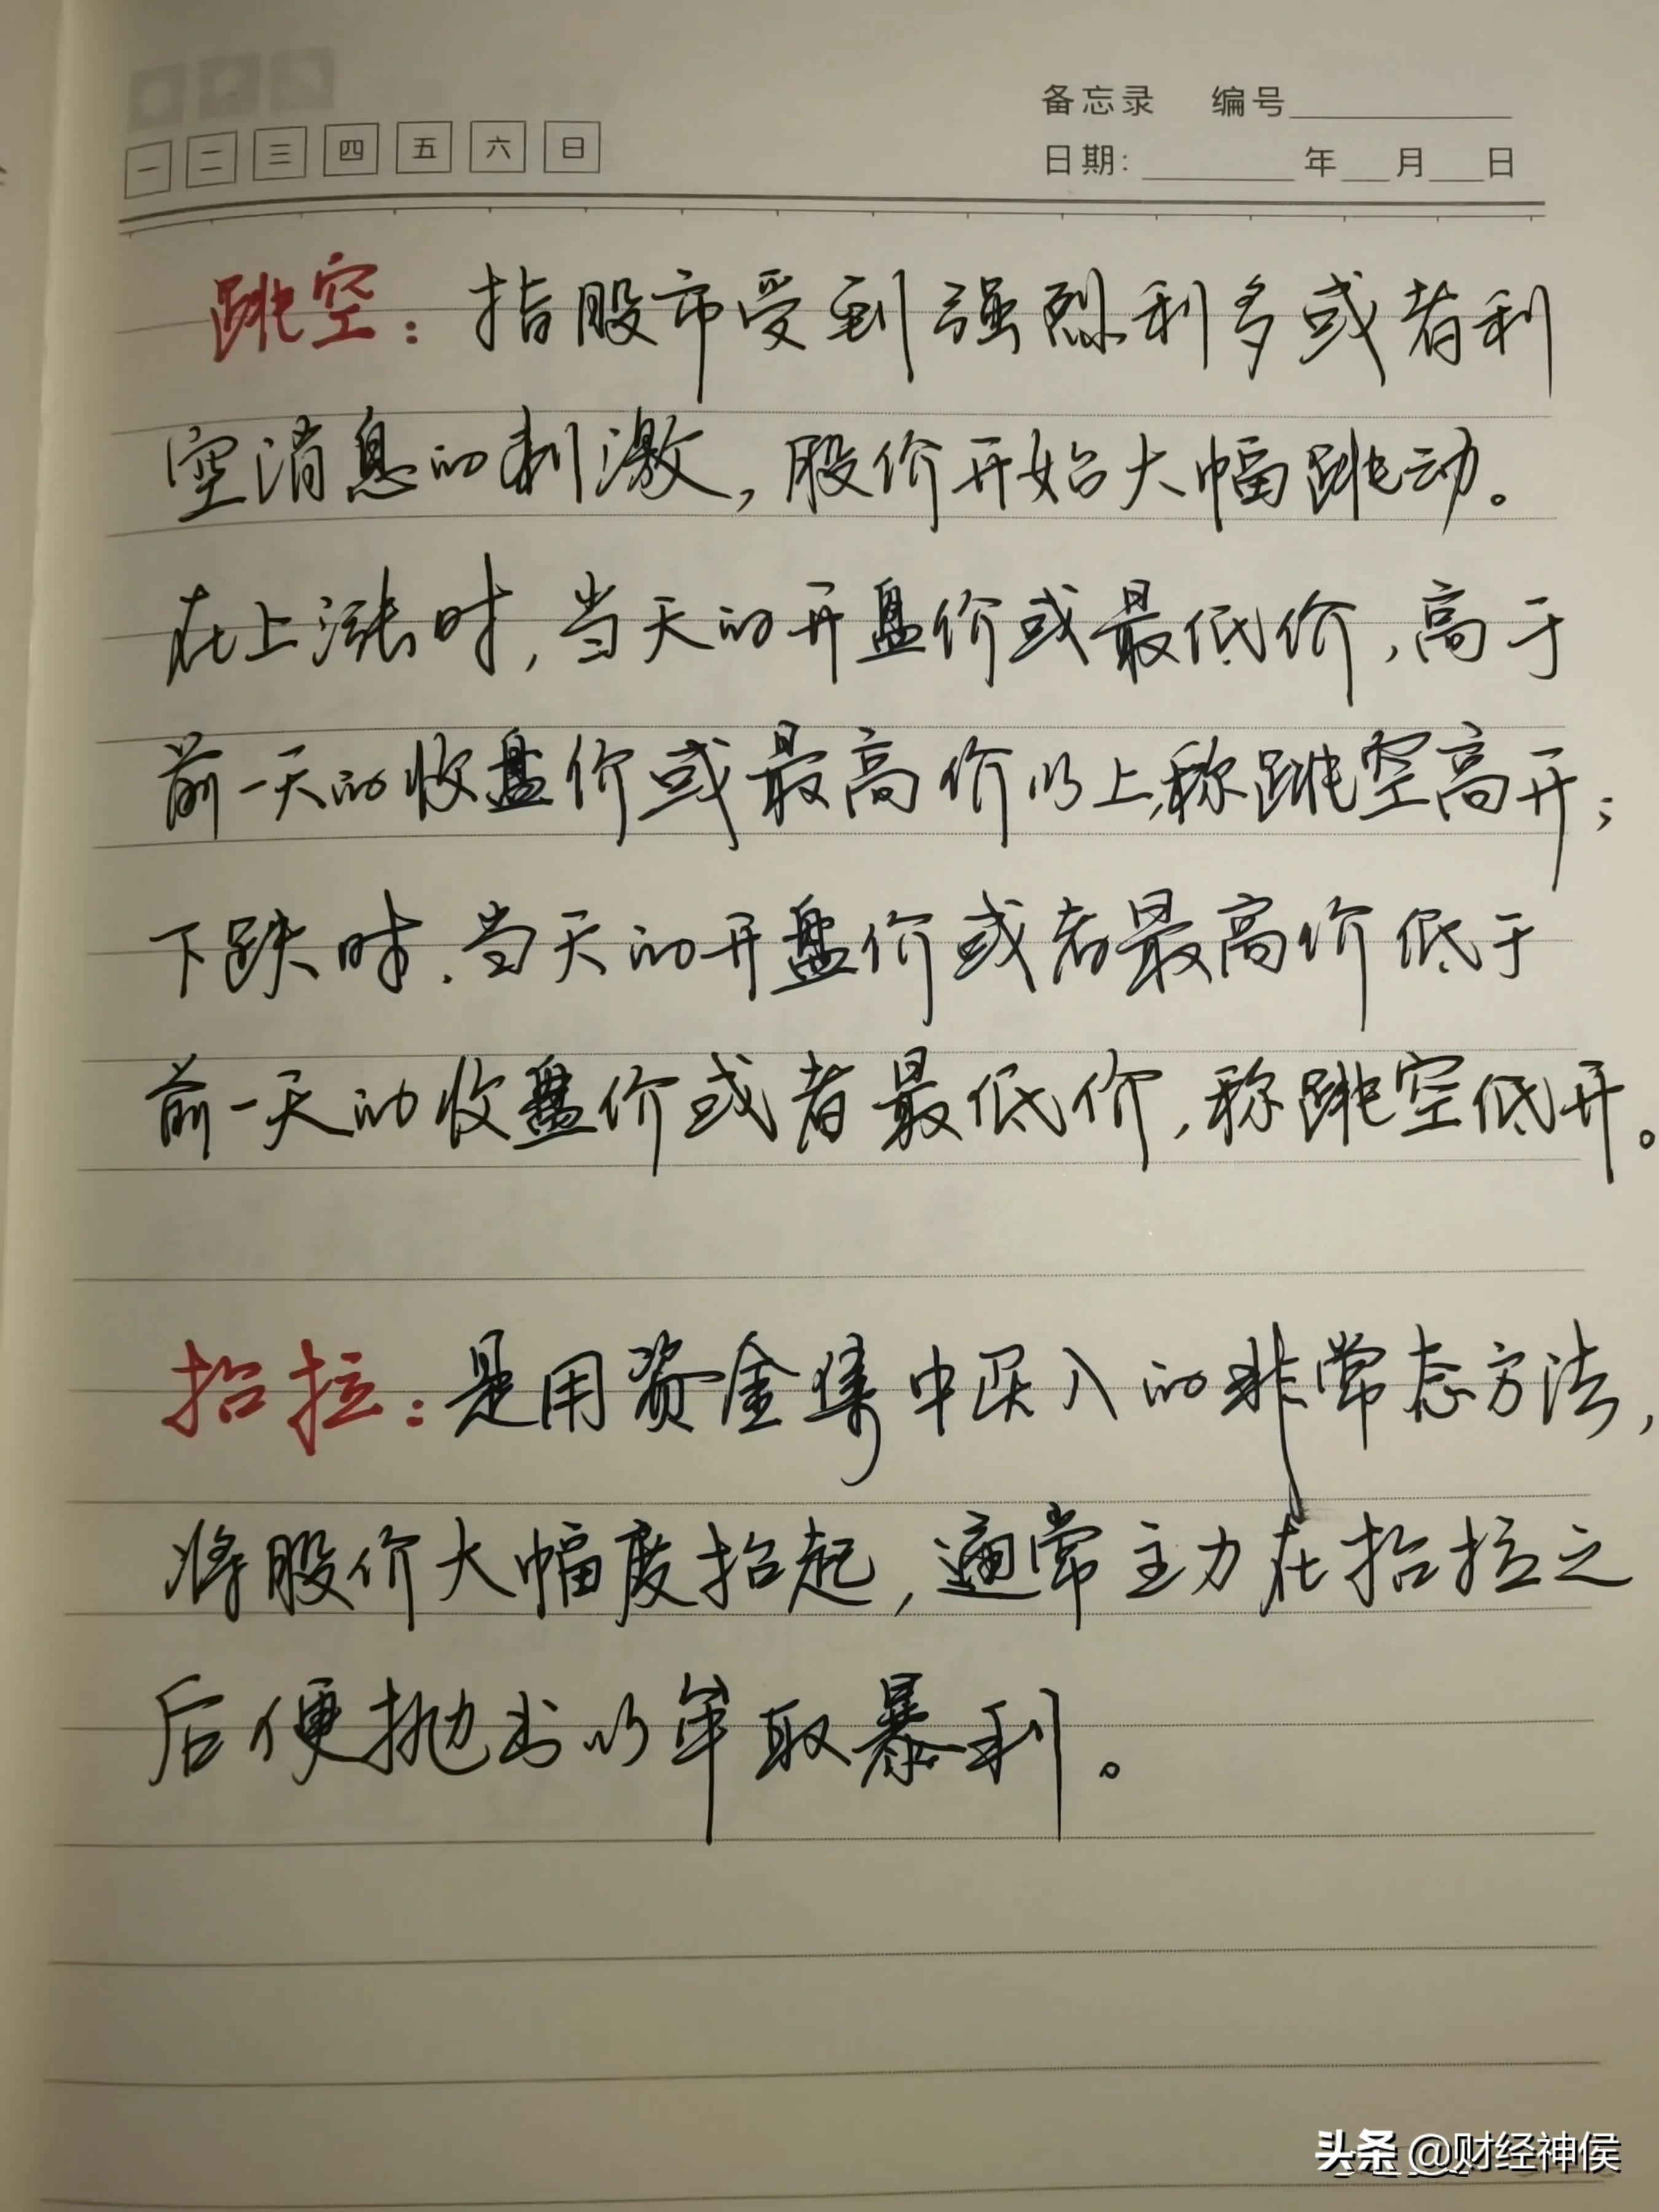 备忘录 编号
一 二 三 四 五 六 日
日期: 年 月 日
跳空：指股市受到强烈利多或者利
空消息的刺激，股价开始大幅跳动。
在上涨时，当天的开盘价或最低价，高于
前一天的收盘价或最高价以上，称跳空高开；
下跌时，当天的开盘价或者最高价低于
前一天的收盘价或者最低价，称跳空低开。
抬拉：是用资金集中买入的非常态方法，
将股价大幅度抬起，通常主力在抬拉之
后便抛出以牟取暴利。
头条 @财经神侯